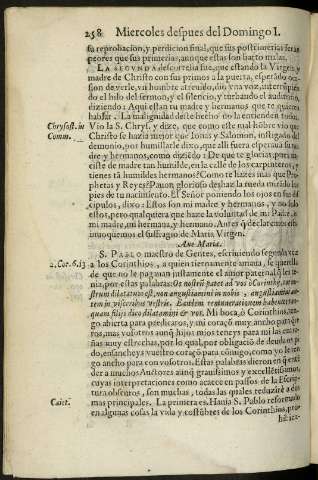 258 Miercoles despues del Domingo I.
su reprobacion, y perdicion final, que sus postrimerias serán
peores que sus primerias, aunque estas son harto malas.
LA SEGVNDA descortesia fue, que estando la Virgen y
madre de Christo con sus primos a la puerta, esperādo
sion de verle, vn hombre atreuido, dio vna voz, interrūpiēdo
el hilo del sermon, y el silencio, y turbando el auditorio,
diziendo: Aqui estan tu madre y hermanos que te quieren
hablar. La malignidad deste hecho no la entendio bien
Chrysost. in
Comm.
Vio la S. Chrysost. y dize, que como este mal hōbre vio que
Christo se hazia mejor que Ionas y Salomon, instigado del
demonio, por humillarle dixo, que alli fuera esperaua su madre
y hermanos, como diziēdo: De que te glorias, pues naciste
de madre tan humilde, en la calle de los carpinteros, y
tienes tā humildes hermanos? Como te hazes mas que Prophetas
y Reyes? Pauon glorioso deshaz la rueda mirādo los
pies de tu nacimiento. El Señor poniendo los ojos en sus discipulos,
dixo: Estos son mi madre y hermanos, y no solo
estos, pero qualquiera que haze la voluntad de mi Padre, es
mi madre, mi hermana, y hermano. Antes q̄ declaremos esto
inuoquemos el sufragio de Maria Virgen.
Aue Maria.
2. Cor. 6. 13
S. PABLO maestro de Gentes, escriuiendo segunda vez
a los Corinthios, a quien tiernamente amaua, se quexa
de que no le pagauan justamente el amor paternal q̄ les tenia,
por estas palabras: Os nostrū patet ad vos ô Corinthij, cor nostrum
dilatatum est, non angustiamini in nobis, angustiamini autem
in visceribus vestris. Eandem remunerationem habentes, tanquam
filijs dico dilatamini & vos. Mi boca, ô Corinthios, tengo
abierta para predicaros, y mi coraçō muy ancho para quereros,
mas vosotros aunq̄ hijos mios teneys para mi las entrañas
muy estrechas, por lo qual, por obligacio de deuda os pido,
ensancheys vuestro coraçō para cōmigo, como yo le tengo
ancho para con vosotros. Estas palabras dieron en q̄ entēder
a muchos Auctores aunq̄ grauissimos y excellētissimos,
cuyas interpretaciones como acaece en passos de la Escriptura
obscuros, son muchas, todas las quales reduziré a dos
Caiet.
mas principales. La primera es. Hauia S. Pablo reformado
en algunas cosas la vida y costūbres de los Corinthios, pro-